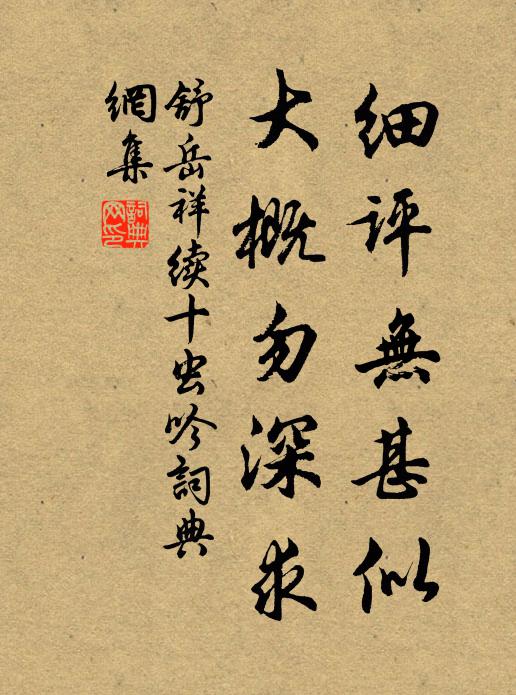 细评無甚似
大概勿深求
舒岳祥续十虫吟詞典
網集
詞典网印